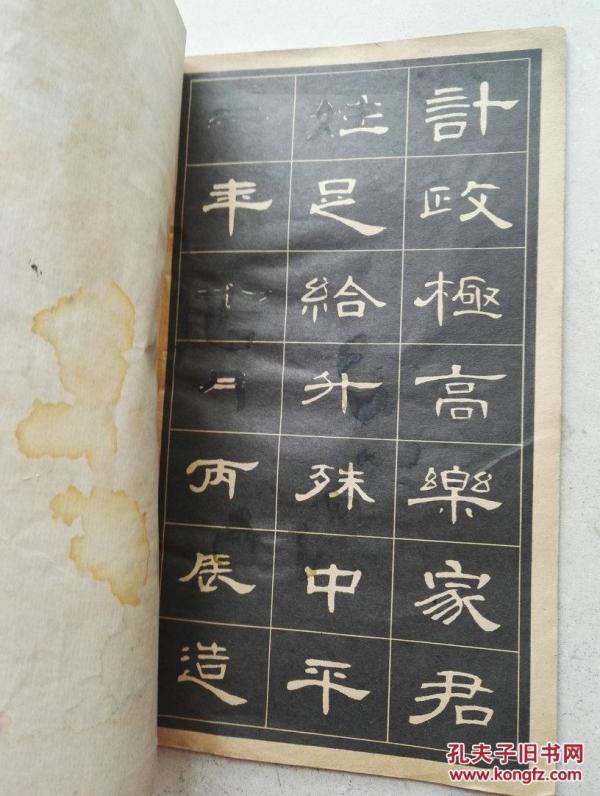 計政極高樂家君
姓足給升殊中平
年十月丙辰造
孔夫子旧书网
www.kongfz.com